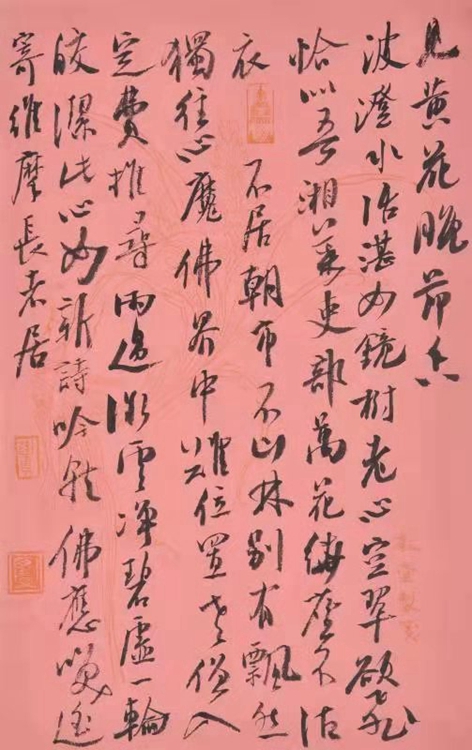 見黄花晚節香
波澄水活湛如鏡樹老心空翠欲飛
恰似吾湘葉吏部萬花座不沾
衣 不居朝市不山林別有飄然
獨往心魔佛界中難位置老僧入
定費推尋雨過微雲净碧虚一輪
皎潔此心如新詩吟就佛應笑遠
寄維摩長老居